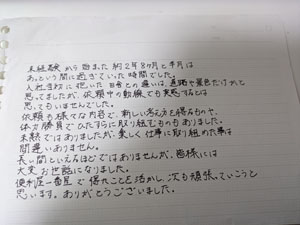 未経験から始まった約2年8ヶ月と半月は
あっという間に過ぎていった時間でした。
入社当初に抱いた日舎との違いは、道路や景色だけかと
思ってましたが、依頼中の動機でも実感するとは
思ってもいませんでした。
依頼も様々な内容で、新しい考え方を得るものや、
体力勝負でひたすらに取り組むものもありました。
未熟ではありましたが、楽しく仕事に取り組めた事は
間違いありません。
長い間といえるほどではありませんが、皆様には
大変お世話になりました。
便利屋一番星で得たことを活かし、次も頑張っていこうと
思います。ありがとうございました。